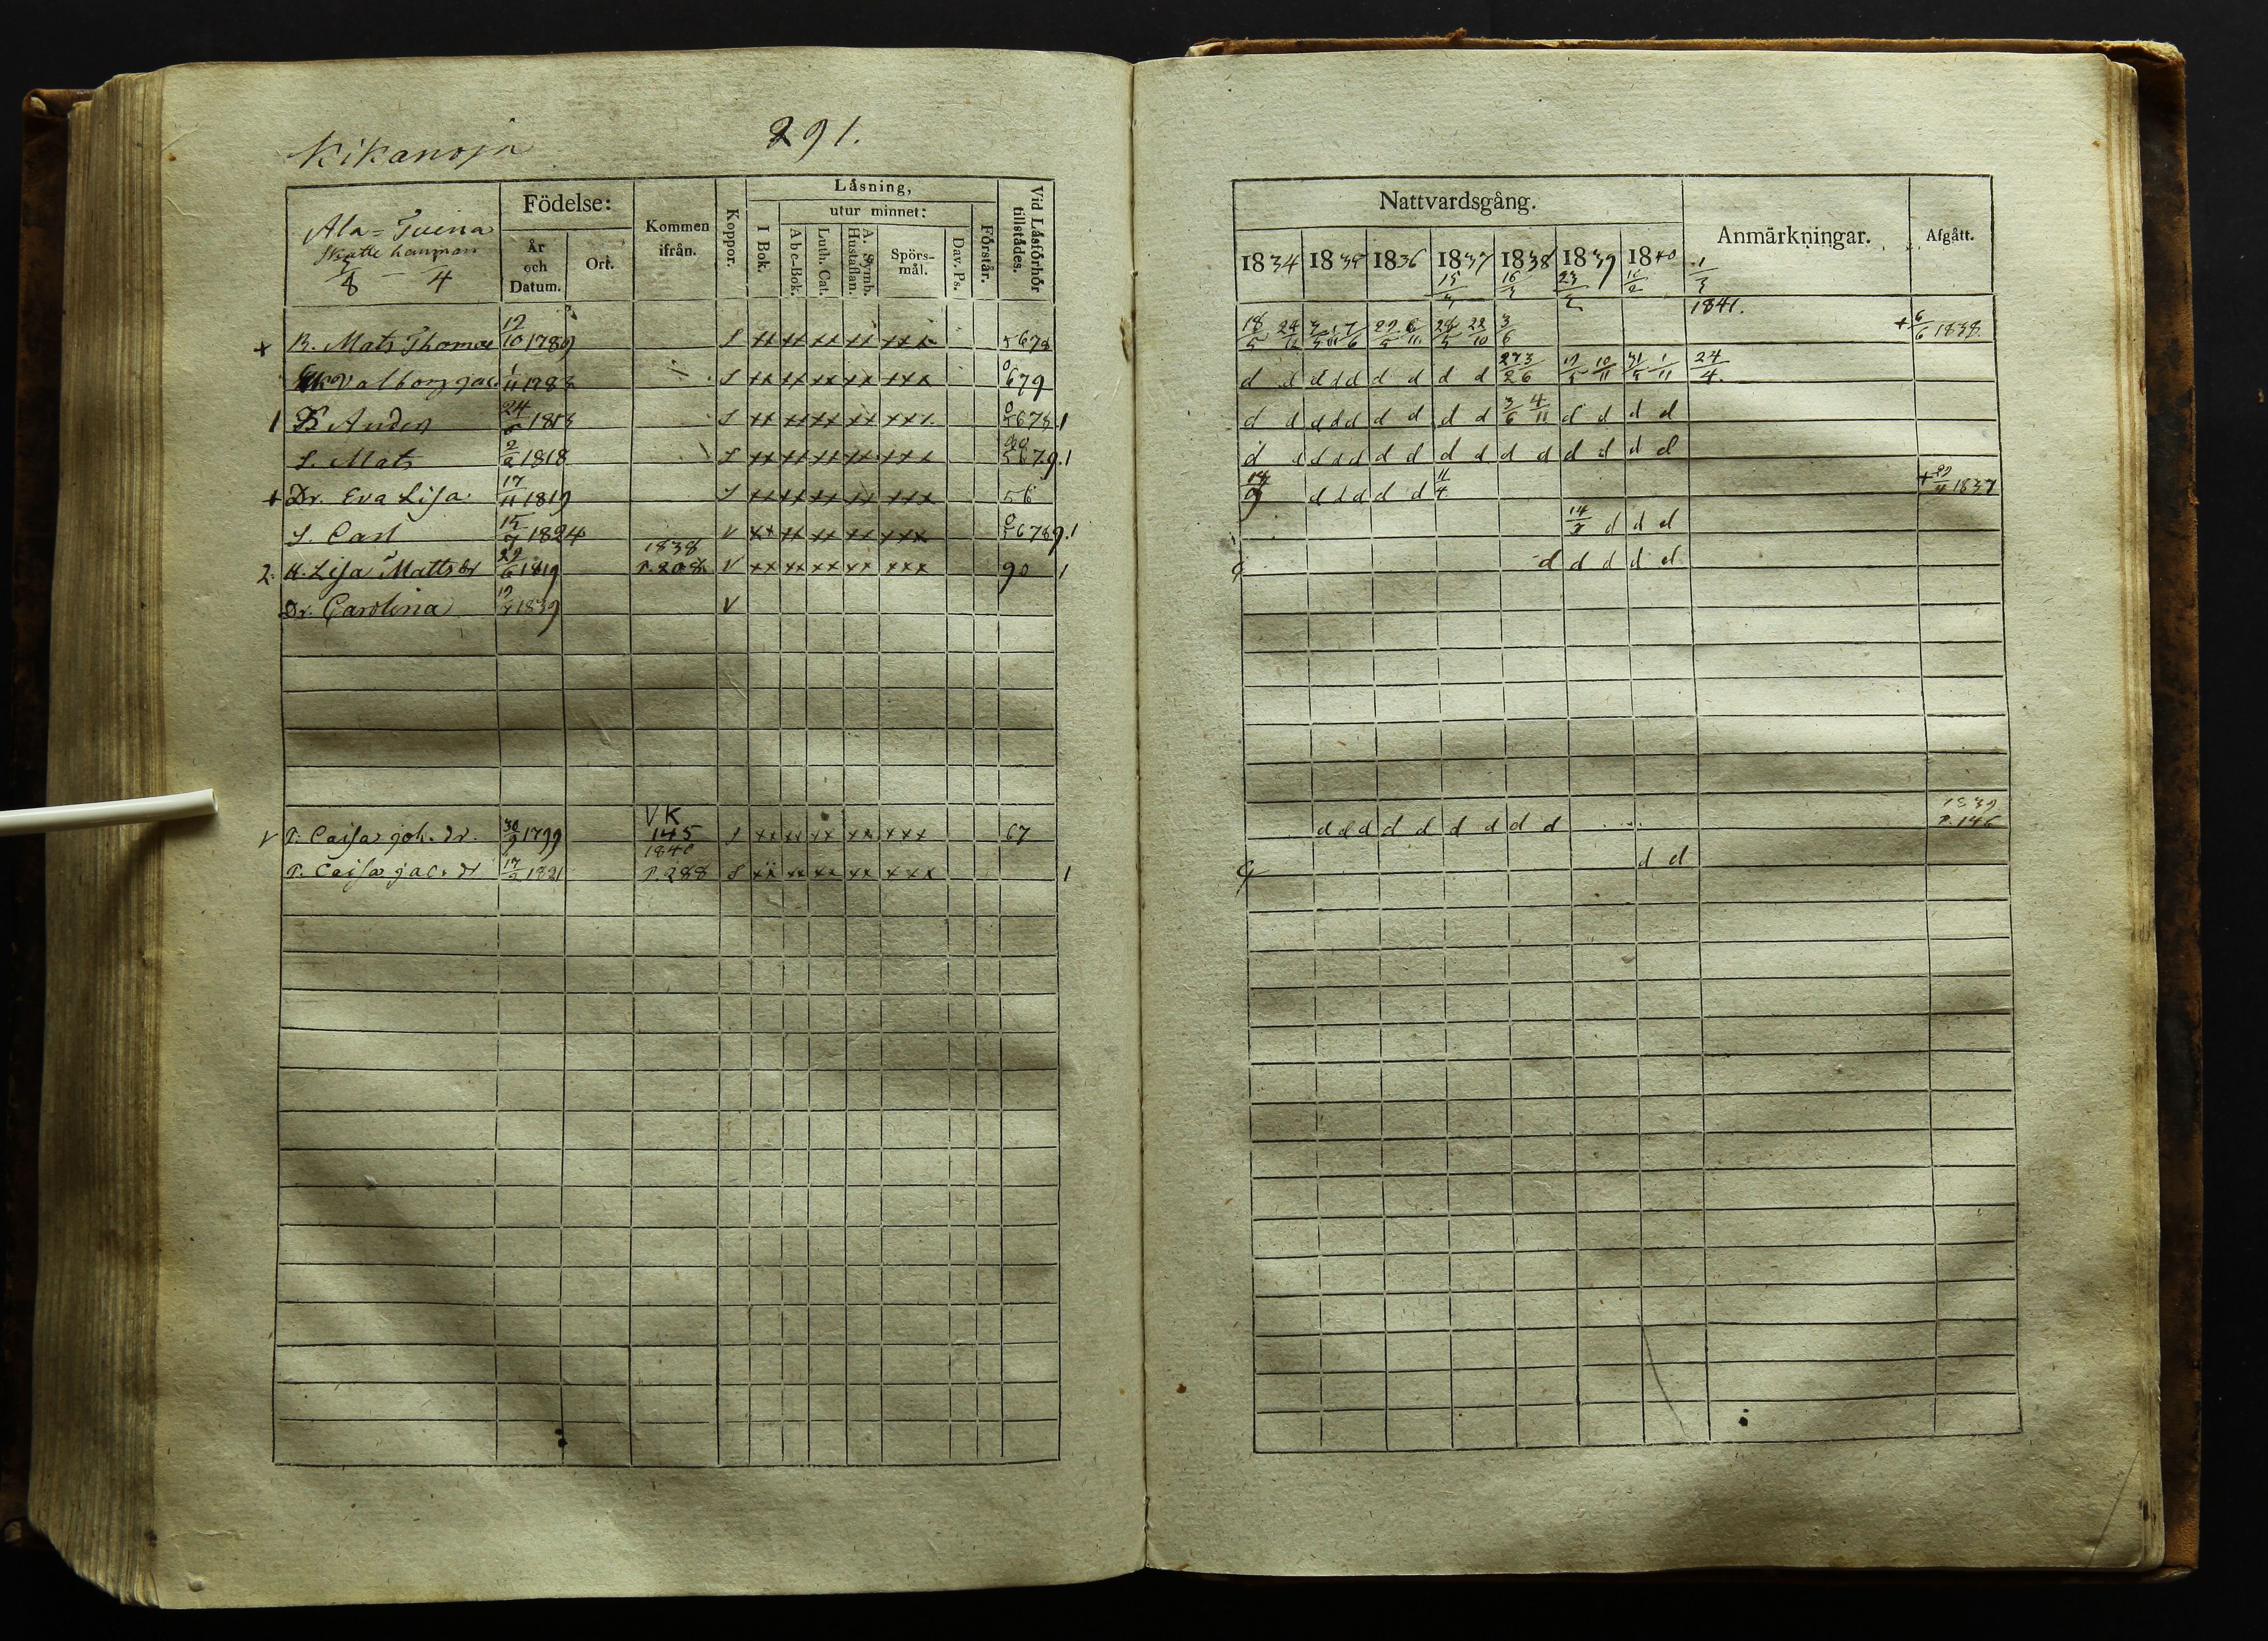 Kikanoja
291.
Ala=Tuina
Skatte hemman
8 4
Födelse:
År och Datum.
Ort.
Kommen ifrån.
Koppor.
Läsning,
I Bok.
utur minnet:
A b c-Bok.
Luth. Cat.
A. Symb. Hustaflan.
Spörs-mål.
Dav. Ps.
Förstår.
Vid Läsförhör tillstädes.
+ B. Mats Thomae 10 1789 S xx xx xx xx xxx 5678
Valborg Jac. 1/11 1788 S xx xx xx xx xxx 679
1 B Anders 24 1813 S xx xx xx xx xxx 678.1
S. Mats 2/2 1818 S xx xx xx xx xxx 679.1
+ Dr. Eva Lisa 17/11 1819 S xx xx xx xx xxx 56
S. Carl 15/7 1824 V xx xx xx xx xxx 6789.1
2. H. Lisa Mattsdr 22/6 1819 1838 P. 208 V xx xx xx xx xxx 90 1
Dr. Carolina 1839 V
V P. Caisa Joh. dr. 30/9 1799 VK 145 S xx xx xx xx xxx 67
P. Caisa Jac. dr 17/2 1821 1840 P. 288 S xx xx xx xx xxx 1
Nattvardsgång.
Anmärkningar.
Afgått.
1834 1835 1836 1837 1838 1839 1840
1841.
3/6 + 6/6 1838.
d d d d d d d d d 24/4.
d d d d d d d d d 3/6 4/11 d d d d
d d d d d d d d d d d d d d d
d d d d d 11/4 + 1837
14 d d d
d d d d d
d d d d d d d d d 1839 P. 146
d d